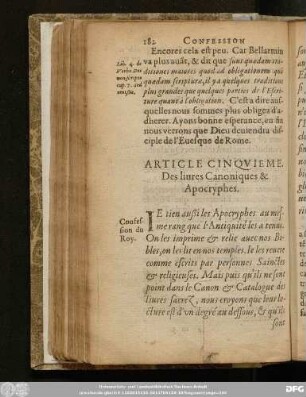 182 CONFESSION
Encores cela est peu. Car Bellarmin
va plus auāt, & dit que sunt quædam tra-
ditiones maiores quoad ad obligationem qu
quædam scriptura, il ya quelques traditiōs
plus grandes que quelques parties de l'Escri-
ture quant à l'obligation. C'est à dire aus-
quelles nous sommes plus obligez d'a-
dherer. Ayons bonne esperance, en fin
nous verrons que Dieu deuiendra dis-
ciple de l'Euesque de Rome.
Lib. 4. de
Verbo Dei
cap.
ARTICLE CINQVIEME.
Des liures Canoniques &
Apocryphes.
Confes-
sion du
Roy.
IE tien aussi les Apocryphes au mes-
me rang que l'Antiquité les a tenus.
On les imprime & relie auec nos Bi-
bles, on les lit en nos temples. Ie les reuere
comme escrits par personnes Sainctes
& religieuses. Mais puis qu'ils ne sont
point dans le Canon & Catalogue des
liures sacrez, nous croyons que leur le-
cture est d'vn degré au dessous, & qu'ils
sont